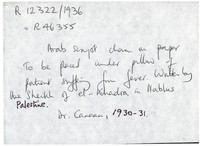 R 12322/1936
= R 46355
Arab script charm on paper
To be placed under pillow of
patient suffering from fever. Written by
the Sheikh of el-Khadra in Nablus
Palestine.
Dr. Canaan, 1930-31.